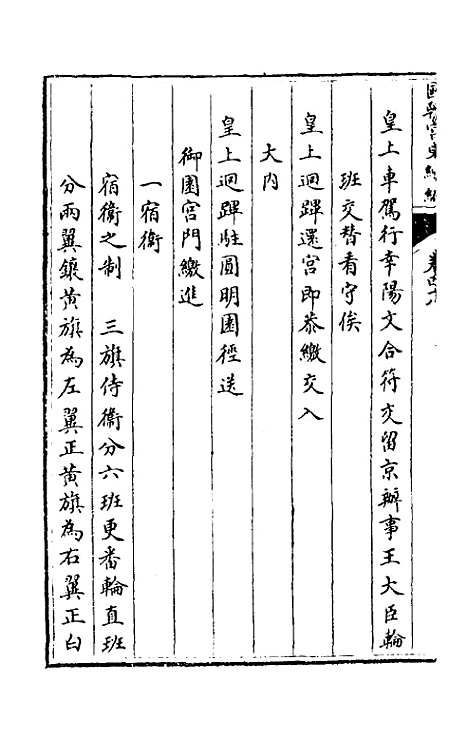 皇上車駕行幸陽文合符交留京辦事王大臣輪
班交替看守俟
皇上迴蹕還宮即恭繳交入
大內
皇上迴蹕駐圓明園徑送
御園宮門繳進
一宿衛
宿衛之制　三旗侍衛分六班更番輪直班
分兩翼鑲黃旗為左翼正黃旗為右翼正白